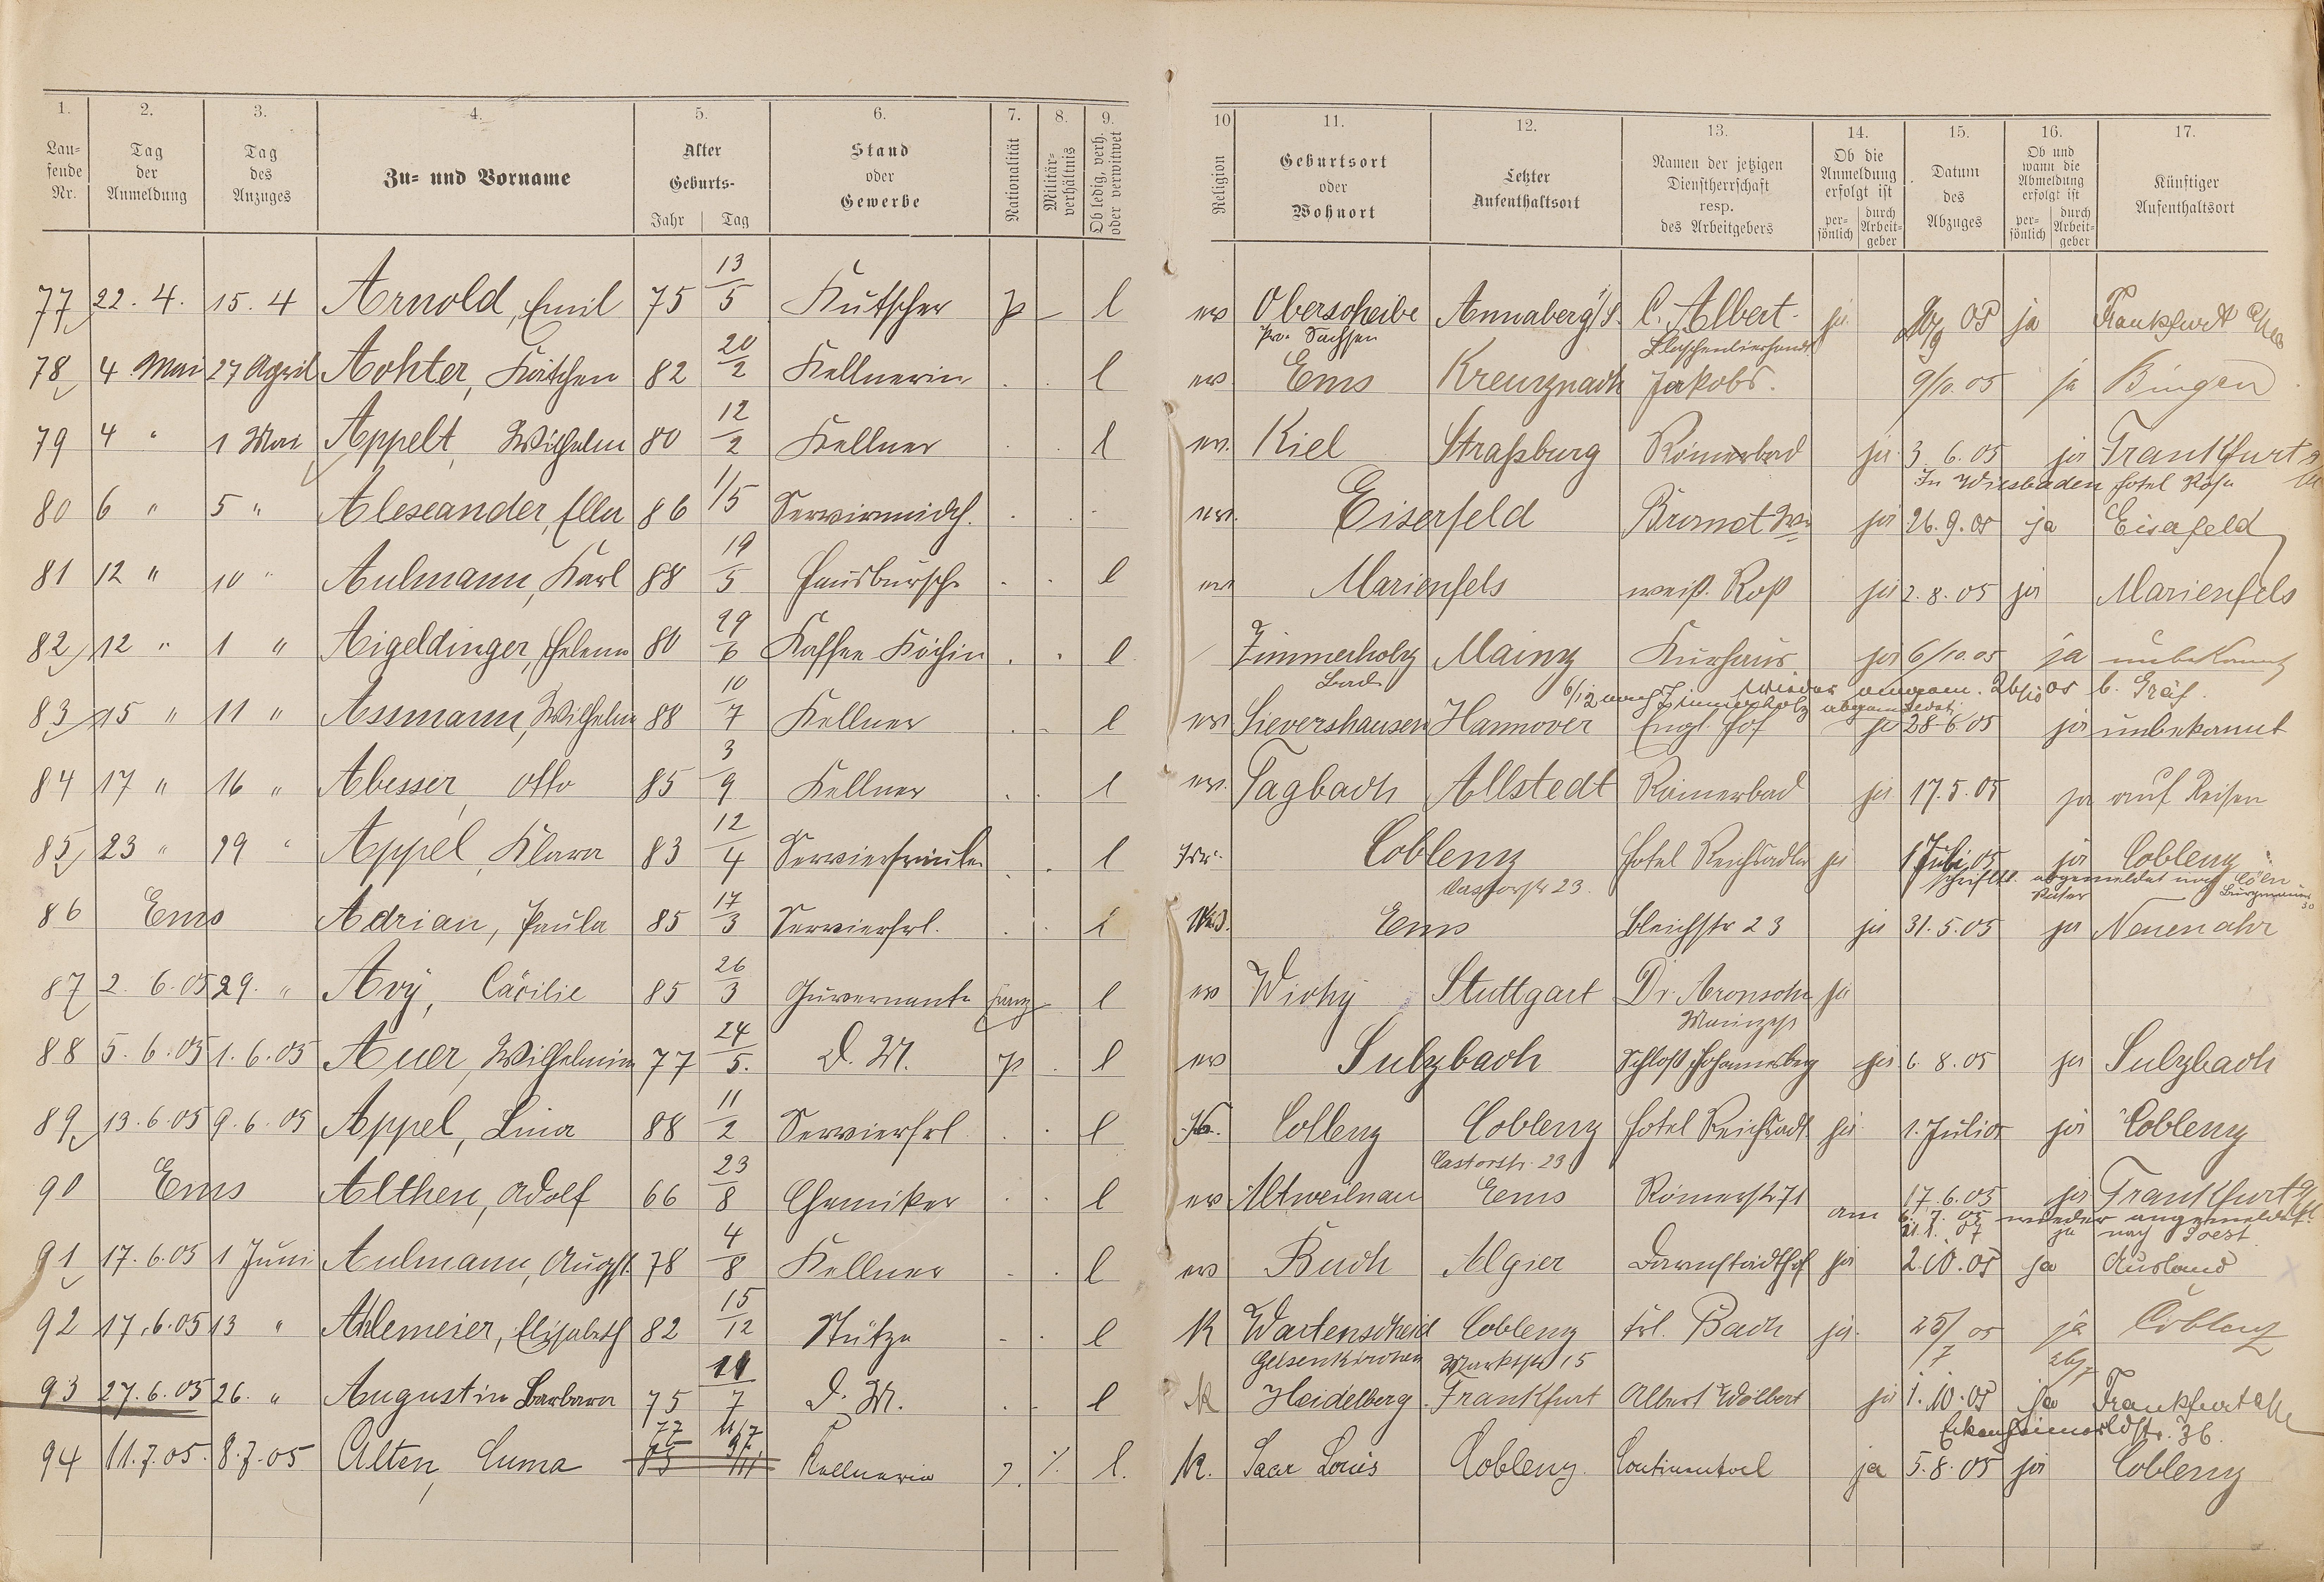 1. 2. 3. 4. 5. 6. 7. 8. 9. 10 11. 12. 13. 14. 15. 16. 17.
Lau-fende Nr. Tag der Anmeldung Tag des Anzuges Zu- und Vorname Alter Geburts- Jahr Tag Stand oder Gewerbe Nationalität Militär-verhältnis Ob ledig, verh. oder verwitwet Religion Geburtsort oder Wohnort Letzter Aufenthaltsort Namen der jetzigen Dienstherrschaft resp. des Arbeitgebers Ob die Anmeldung erfolgt ist per-sönlich durch Arbeit-geber Datum des Abzuges Ob und wann die Abmeldung erfolgt ist per-sönlich durch Arbeit-geber Künftiger Aufenthaltsort
77 22. 4. 15. 4 Arnold, Emil 75 13/5 Kutscher p – l ev Oberscheibe Annaberg i/S. C. Albert ja 05 ja Frankfurt
Pr. Sachsen
78 4 Mai 27 April Achter, Kätchen 82 20/2 Kellnerin . . l ev Ems Kreuznach Jakobs. 9/10.05 ja Bingen
79 4 " 1 Mai Appelt, Wilhelm 80 12/2 Kellner . l ev. Kiel Straßburg Römerbad ja 3. 6. 05 ja Frankfurt
In Wiesbaden Hotel Rose
80 6 " 5 " Alexeander, Ella 86 1/5 Serviermädch. . . . ev. Eiserfeld ja 26. 9. 05 ja Eiserfeld
81 12 " 10 " Aulmann, Karl 88 19/5 Hausbursche . . l ev Marienfels weiß. Roß ja 2. 8. 05 ja Marienfels
82 12 " 1 " Aigeldinger, Helene 80 29/6 Kaffee Köchin . . l Zimmerholz Mainz Kurhaus ja 6/10.05 ja unbekannt
Bad. 6/12 nach Zimmerholz abgemeldet wieder angem. b. Gräf.
83 15 " 11 " Assmann, Wilhelm 88 10/7 Kellner . . l ev Sievershausen Hannover Engl. Hof ja 28.6.05 ja unbekannt
84 17 " 16 " Abesser, Otto 85 3/9 Kellner . . l ev. Tagbach Allstedt Römerbad ja 17. 5. 05 ja auf Reisen
85 23 " 19 " Appel, Klara 83 12/4 Servierfräulein . . l Isr. Coblenz Hotel Reichsadler ja 1 Juli 05 ja Coblenz
Castorstr 23. schriftl. abgemeldet nach Cöln
86 Ems Adrian, Paula 85 17/3 Servierfrl. . . l Ems Bleichstr 23 ja 31. 5. 05 ja Neuenahr
87 2. 6. 05 29. " Avy, Cäcilie 85 26/3 Guvernante franz – l ev Wichy Stuttgart Dr. Aronsohn ja
Mainzerstr
88 5. 6. 05 1. 6. 05 Auer, Wilhelmine 77 24/5. D. M. p . l ev Sulzbach Schloß Johannisberg ja 6. 8. 05 ja Sulzbach
89 13. 6. 05 9. 6. 05 Appel, Lina 88 11/2 Servierfrl . . l Coblenz Coblenz Hotel Reichsadl. ja 1. Juli 05 ja Coblenz
Castorstr. 23
90 Ems Althen, Adolf 66 23/8 Chemiker . . l ev Altweilnau Ems Römerstr 71 17. 6. 05 ja Frankfurt
am 6. 7. 05 wieder angemeldet.
21. 1. 07 ja nach Soest
91 17. 6. 05 1 Juni Aulmann, August 78 4/8 Kellner . . l ev Buch Algier Darmstädthof ja 2.10.05 ja Ausland
92 17. 6. 05 13 " Ahlemeier, Elisabeth 82 15/12 Stütze - . l K Wattenscheid Coblenz Frl. Bach ja. 25/7 05 ja Coblenz
Gelsenkirchen Marktstr 15
93 27. 6. 05 26. " Augustin Barbara 75 7 D. M. . . l K Heidelberg Frankfurt Albert Wölbert ja 1. 10. 05 ja Frankfurt
36.
94 11. 7. 05. 8. 7. 05 Alten, Emma 77 11/7 Kellnerin ./. l. K. Saar Louis Coblenz. Continental ja 5. 8. 05 ja Coblenz